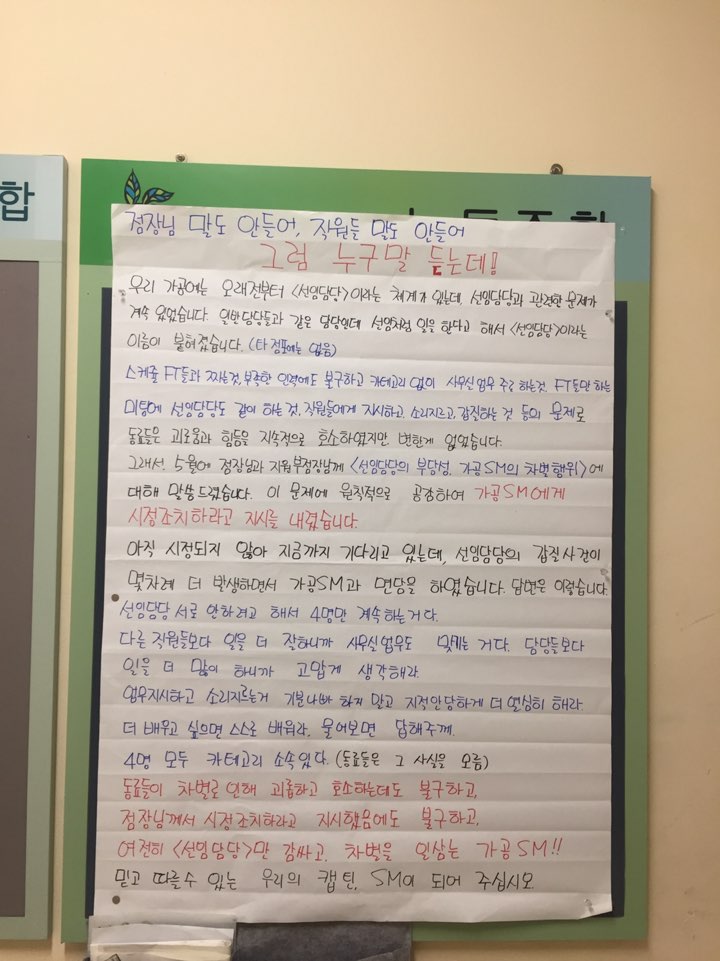 합
노동조합
점장님 말도 안들어, 직원들 말도 안들어
그럼 누구말 듣는데!
우리 가공에는 오래전부터 <선임담당>이라는 체계가 있는데, 선임담당과 관련한 문제가
계속 있었습니다. 일반담당들과 같은 담당인데 선임처럼 일을 한다고 해서 <선임담당>이라는
이름이 붙혀졌습니다. (타점포에는 없음)
스케줄 FT들과 짜는것, 부족한 인력에도 불구하고 카테고리 없이 사무실업무 주로 하는것. FT들만 하는
미팅에 선임담당도 같이 하는것, 직원들에게 지시하고, 소리지르고, 갑질하는 것 등의 문제로
동료들은 괴로움과 힘듦을 지속적으로 호소하였지만, 변한게 없었습니다.
그래서, 5월에 점장님과 지원부점장님께 <선임담당의 부당성, 가공SM의 차별행위>에
대해 말씀드렸습니다. 이 문제에 원칙적으로 공감하여 가공SM에게
시정조치하라고 지시를 내렸습니다.
아직 시정되지 않아 지금까지 기다리고 있는데, 선임담당의 갑질사건이
몇차례 더 발생하면서 가공SM과 면담을 하였습니다. 답변은 이렇습니다.
선임담당 서로 안하려고 해서 4명만 계속하는거다.
다른 직원들보다 일을 더 잘하니까 사무실업무도 맡기는 거다. 담당들보다
일을 더 많이 하니까 고맙게 생각해라.
업무지시하고 소리지르는거 기분나빠 하지 말고 지적안당하게 더 열심히 해라.
더 배우고 싶으면 스스로 배워라. 물어보면 답해주께.
4명 모두 카테고리 소속있다. (동료들은 그 사실을 모름)
동료들이 차별로 인해 괴롭하고 호소하는데도 불구하고,
점장님께서 시정조치하라고 지시했음에도 불구하고,
여전히 <선임담당>만 감싸고, 차별을 일삼는 가공SM!!
믿고 따를수 있는 우리의 캡틴, SM이 되어 주십시오.